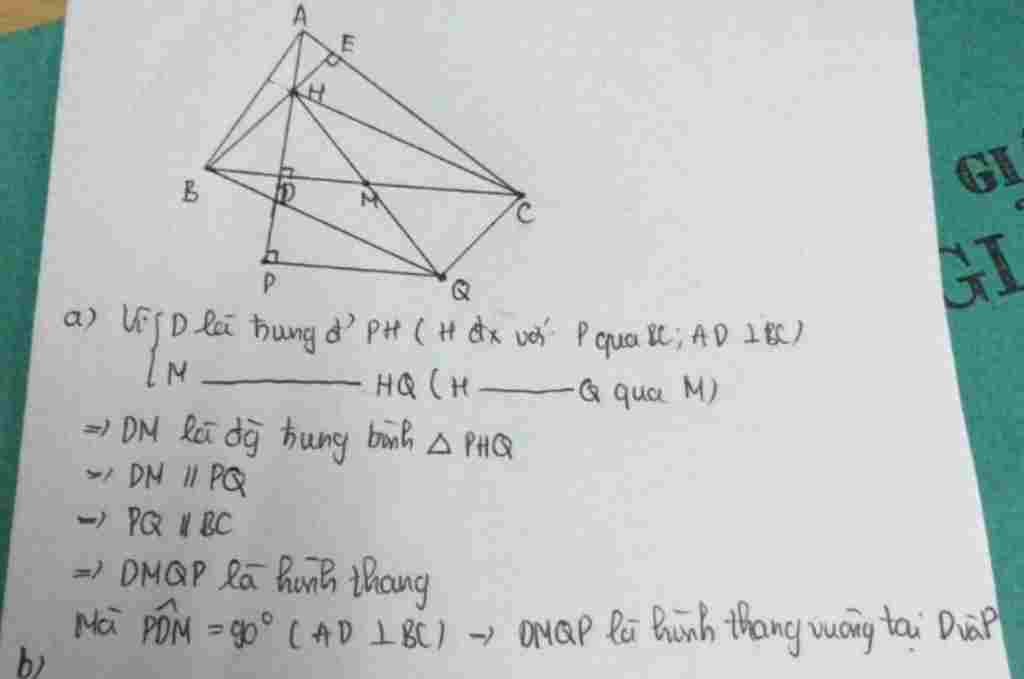 A
E
H
B
D
M
C
P
Q
GI
GI
a) Vì { D là trung đ' PH ( H đx với P qua BC; AD ⊥ BC)
M ———— HQ ( H ——— Q qua M)
=> DM là đg trung bình △ PHQ
-> DM // PQ
-> PQ // BC
=> DMQP là hình thang
Mà PD̂M = 90° ( AD ⊥ BC) -> DMQP là hình thang vuông tại D và P
b)